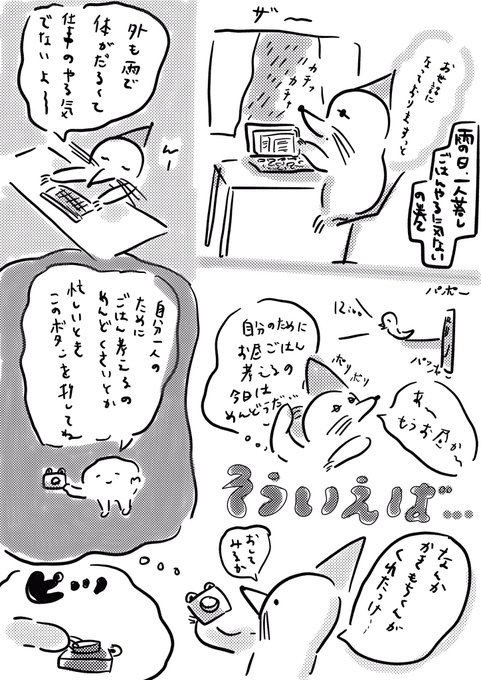 雨の日、一人暮し
ごはんやる気ない
の巻
ザー
お世話に
なっておりますっと
カチッ
カチャ
外も雨で
体がだるくて
仕事のやる気
でないよ〜
んー
パポー
パッポー
12:00
あ〜
もうお昼か〜
ポリポリ
自分のために
お昼ごはん
考えるの
今日は
めんどうだ…
そういえば…
なんか
かきもちくんが
くれたっけ…
おして
みるか
自分一人の
ために
ごはん考えるの
めんどくさいとか
忙しいとき
このボタンを押してね
ピッ